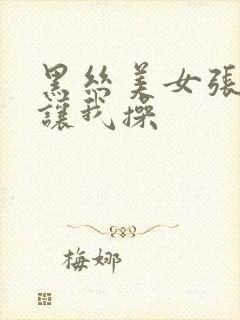 黑丝美女張
讓我操
梅娜